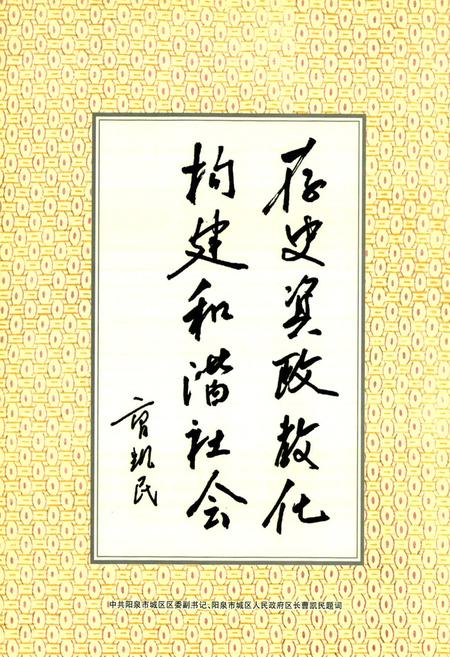 存史资政教化
构建和谐社会
曹凯民
中共阳泉市城区区委副书记、阳泉市城区人民政府区长曹凯民题词